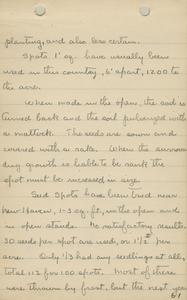 planting, and also less certain.
Spots 1' sq. have usually been
used in this country, 6' apart, 1200 to
the acre.
When made in the open, the sod is
turned back and the soil pulverized with
a mattock. The seeds are sown and
covered with a rake. When the surroun-
ding growth is liable to be rank the
spot must be increased in size.
Seed Spots have been tried near
New Haven, 1-3 sq. ft., in the open and
in open stands. No satisfactory results.
30 seeds per spot are used, or 1 1/2 # per
acre. Only 1/3 had any seedlings at all,
total 112 for 100 spots. Most of these
were thrown by frost, but the next year
61